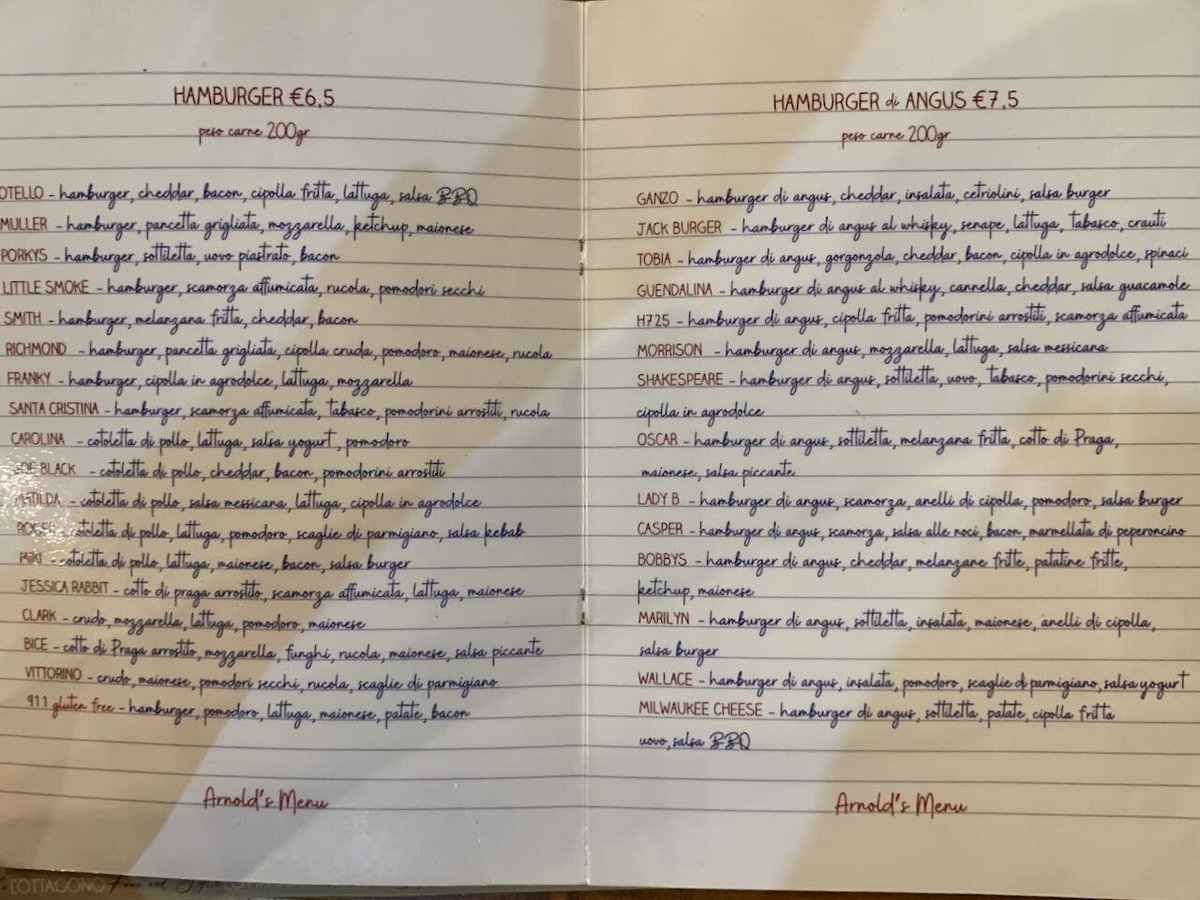 HAMBURGER €6,5
peso carne 200gr
OTELLO - hamburger, cheddar, bacon, cipolla fritta, lattuga, salsa BBQ
MULLER - hamburger, pancetta grigliata, mozzarella, ketchup, maionese
PORKYS - hamburger, sottiletta, uovo piastrato, bacon
LITTLE SMOKE - hamburger, scamorza affumicata, rucola, pomodori secchi
SMITH - hamburger, melanzana fritta, cheddar, bacon
RICHMOND - hamburger, pancetta grigliata, cipolla cruda, pomodoro, maionese, rucola
FRANKY - hamburger, cipolla in agrodolce, lattuga, mozzarella
SANTA CRISTINA - hamburger, scamorza affumicata, tabasco, pomodorini arrostiti, rucola
CAROLINA - cotoletta di pollo, lattuga, salsa yogurt, pomodoro
JOE BLACK - cotoletta di pollo, cheddar, bacon, pomodorini arrostiti
MATILDA - cotoletta di pollo, salsa messicana, lattuga, cipolla in agrodolce
cotoletta di pollo, lattuga, pomodoro, scaglie di parmigiano, salsa kebab
MIKI - cotoletta di pollo, lattuga, maionese, bacon, salsa burger
JESSICA RABBIT - cotto di praga arrostito, scamorza affumicata, lattuga, maionese
CLARK - crudo, mozzarella, lattuga, pomodoro, maionese
BICE - cotto di Praga arrostito, mozzarella, funghi, rucola, maionese, salsa piccante
VITTORINO - crudo, maionese, pomodori secchi, rucola, scaglie di parmigiano
911 gluten free - hamburger, pomodoro, lattuga, maionese, patate, bacon
Arnold's Menu
HAMBURGER di ANGUS €7,5
peso carne 200gr
GANZO - hamburger di angus, cheddar, insalata, cetriolini, salsa burger
JACK BURGER - hamburger di angus al whisky, senape, lattuga, tabasco, crauti
TOBIA - hamburger di angus, gorgonzola, cheddar, bacon, cipolla in agrodolce, spinaci
GUENDALINA - hamburger di angus al whisky, cannella, cheddar, salsa guacamole
H725 - hamburger di angus, cipolla fritta, pomodorini arrostiti, scamorza affumicata
MORRISON - hamburger di angus, mozzarella, lattuga, salsa messicana
SHAKESPEARE - hamburger di angus, sottiletta, uovo, tabasco, pomodorini secchi,
cipolla in agrodolce
OSCAR - hamburger di angus, sottiletta, melanzana fritta, cotto di Praga,
maionese, salsa piccante
LADY B - hamburger di angus, scamorza, anelli di cipolla, pomodoro, salsa burger
CASPER - hamburger di angus, scamorza, salsa alle noci, bacon, marmellata di peperoncino
BOBBYS - hamburger di angus, cheddar, melanzane fritte, patatine fritte,
ketchup, maionese
MARILYN - hamburger di angus, sottiletta, insalata, maionese, anelli di cipolla,
salsa burger
WALLACE - hamburger di angus, insalata, pomodoro, scaglie di parmigiano, salsa yogurt
MILWAUKEE CHEESE - hamburger di angus, sottiletta, patate, cipolla fritta
uovo, salsa BBQ
Arnold's Menu
L'OTTAGONO